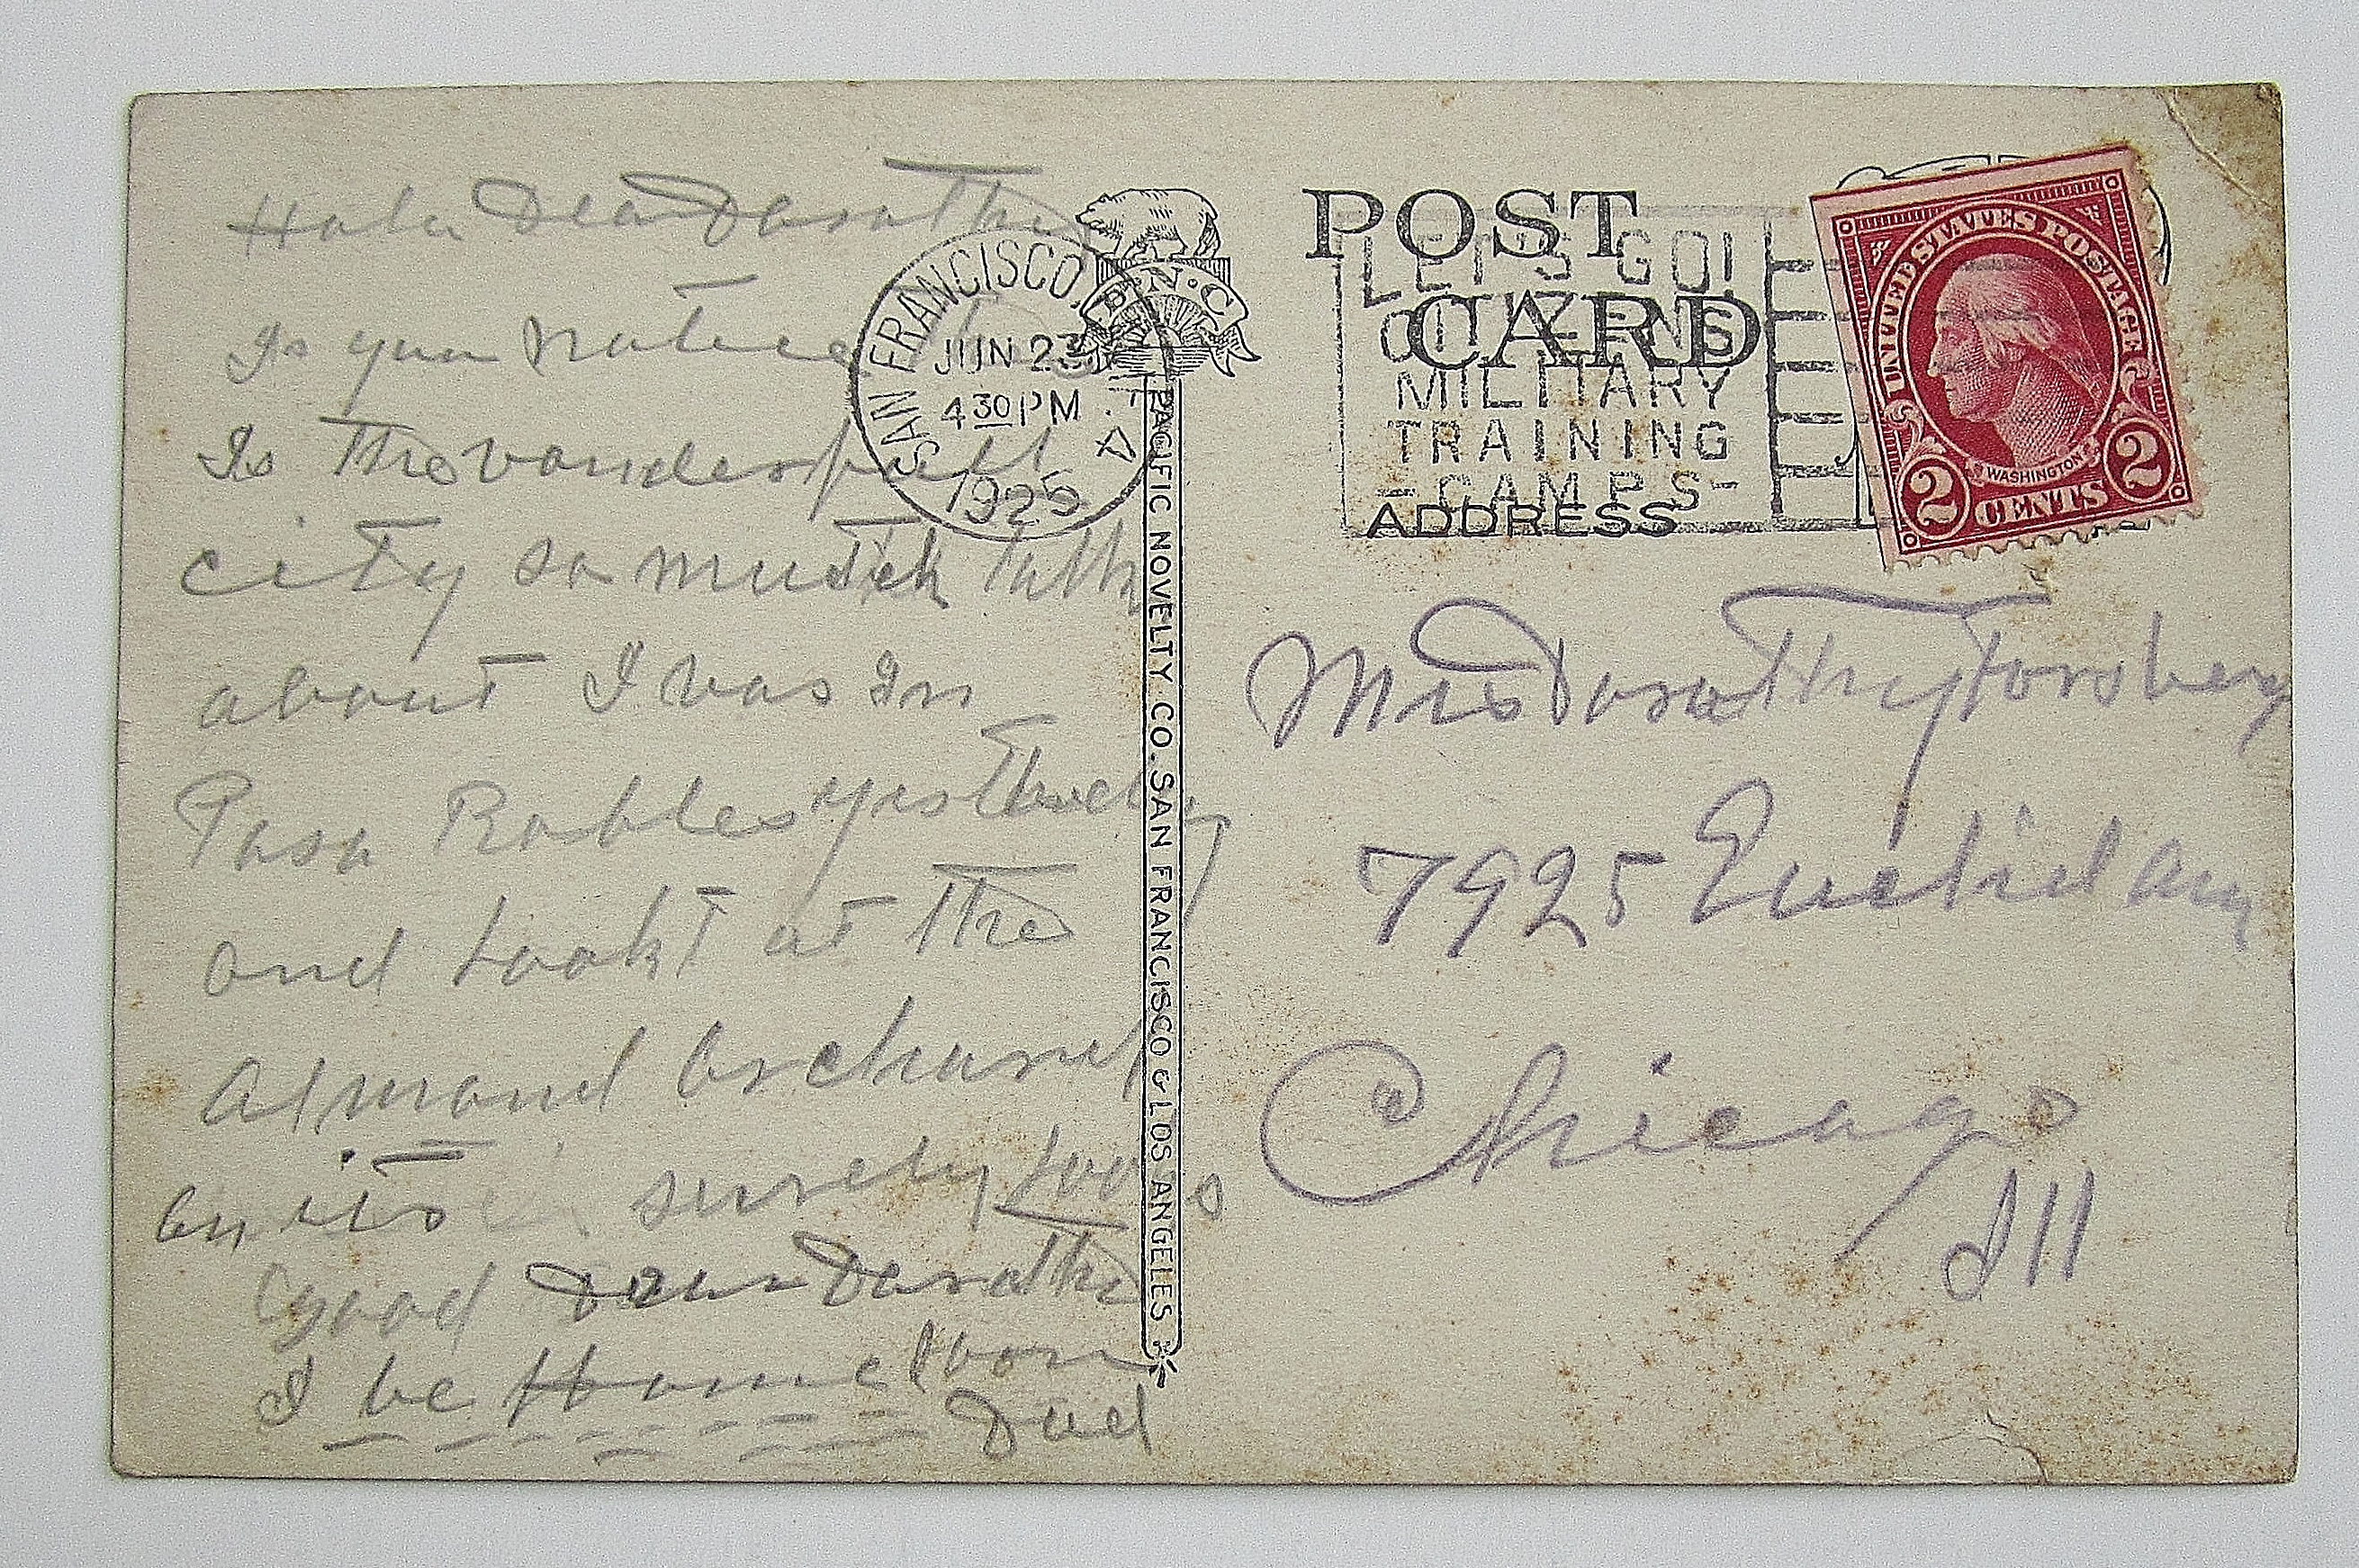 Halo Dear Dorothy
Is you notice
Is The vonderfull
city so mutch talk
about I vas In
Paso Robles yesterday
and lookt at the
Almond Orchard
surely looks
good Dear Dorothy
I be Home soon
Dad
SAN FRANCISCO,
JUN 23
4 30 PM
1925
P.N.C
PACIFIC NOVELTY CO. SAN FRANCISCO & LOS ANGELES
POST
CARD
LET'S GO!
CITIZENS
MILITARY
TRAINING
-CAMPS-
ADDRESS
UNITED STATES POSTAGE
WASHINGTON
2 CENTS 2
Miss Dorothy Forsberg
7925 Euclid Av
Chicago
Ill